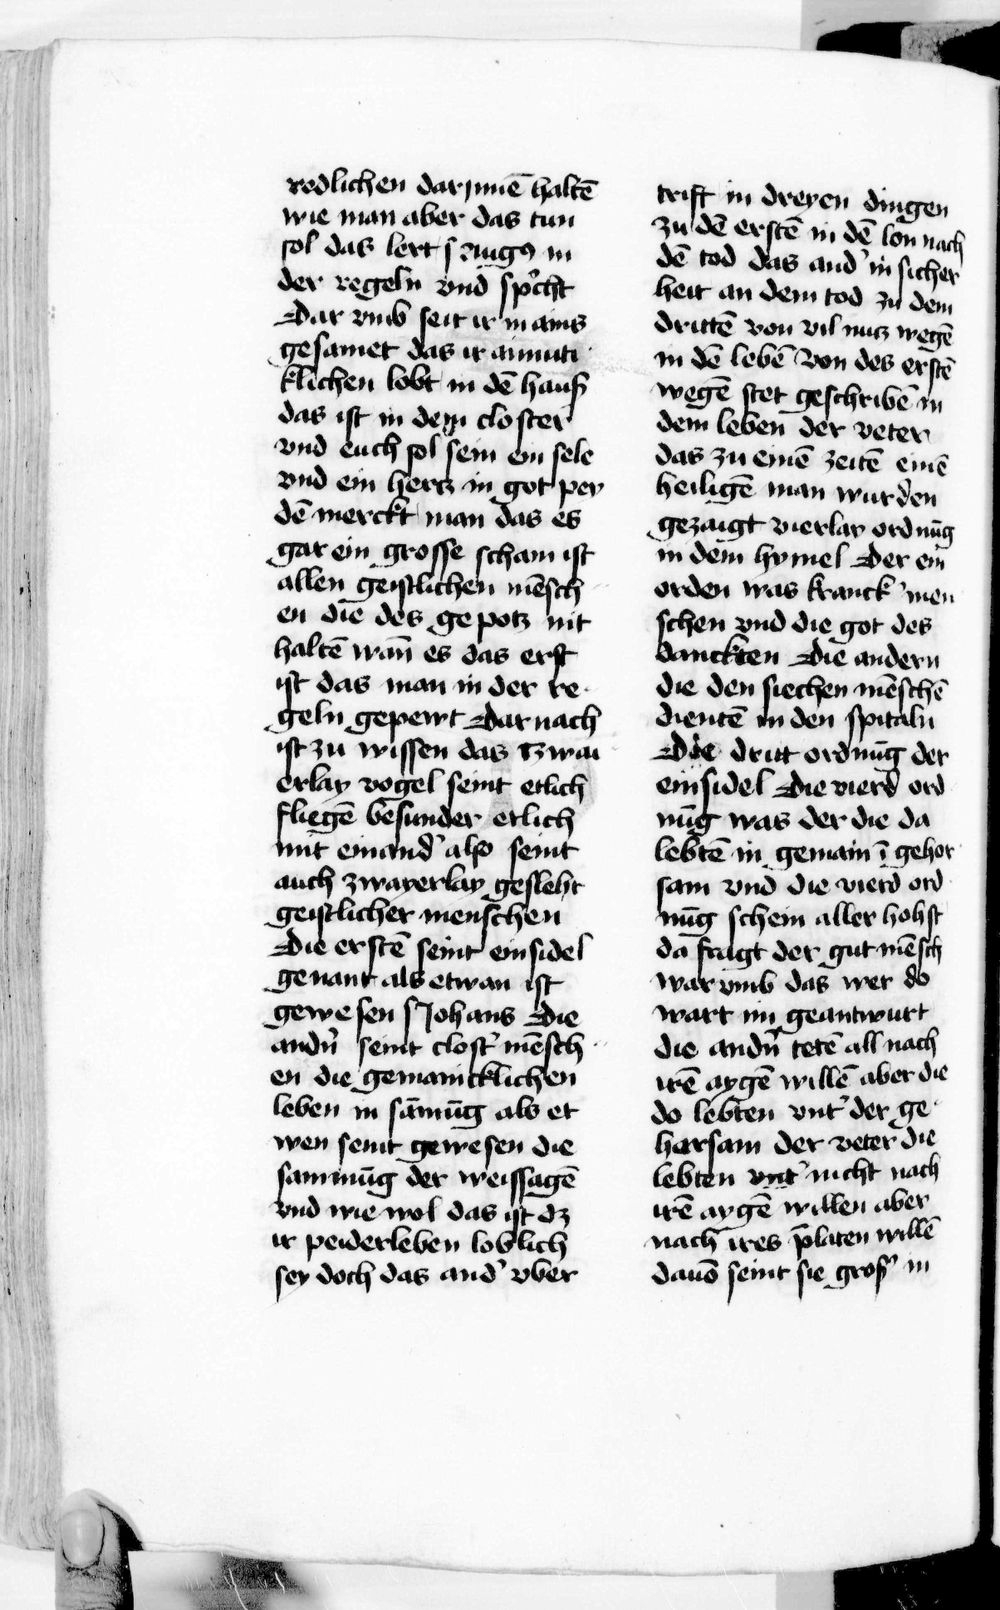 redlichen darjnnē haltē
wie man aber das tun
sol das lert s augꝰ in
der regeln vnd spͥcht
Dar vmb seit ir in ains
gesamet das ir ainmuti
klichen lobt in dē hauß
das ist in dem closter
vnd euch sol sein ein sele
vnd ein hertz in got pey
dē merckt man das es
gar ein grosse scham ist
allen geistlichen mēsch
en die des gepotz nit
haltē wañ es das erst
ist das man in der re
geln gepewt Dar nach
ist zu wissen das Tzwai
erlay vogel seint etlich
fliegē besunder etlich
mit einand' also seint
auch zwayerlay gesleht
geistlicher menschen
Die erstē seint einsidel
genant als etwan ist
gewesen s Johans Die
andn̄ seint clost' mēsch
en die gemaincklichen
leben in sāmūg als et
wen seint gewesen die
sammūg der weissagē
vnd wie wol das ist dz
ir peiderleben loblich
sey doch das and' vber
trift in dreyen dingen
zu dē erstē in dē lon nach
dē tod das and' in sicher
heit an dem tod zu dem
drittē von vil nutz wegē
in dē lebē Von des erstē
wegē stet geschribē in
dem leben der veter
das zu einē zeitē einē
heiligē man wurden
gezaigt vierlay ordnūg
in dem hymel Der ein
orden was kranck men
schen vnd die got des
danckten Die andern
die den siechen mēschē
dientē in den spitaln
Die dritt ordnūg der
einsidel Die vierd ord
nūg was der die da
lebtē in gemain ī gehor
sam vnd die vierd ord
nūg schein aller hohst
da fragt der gut mēsch
war vmb das wer do
wart im geantwurt
die andn̄ tetē all nach
irē aygē willē aber die
do lebten vnt' der ge
horsam der veter die
lebten vnt' nicht nach
irē aygē willen aber
nach ires p̄laten willē
dauō seint sie groß' in